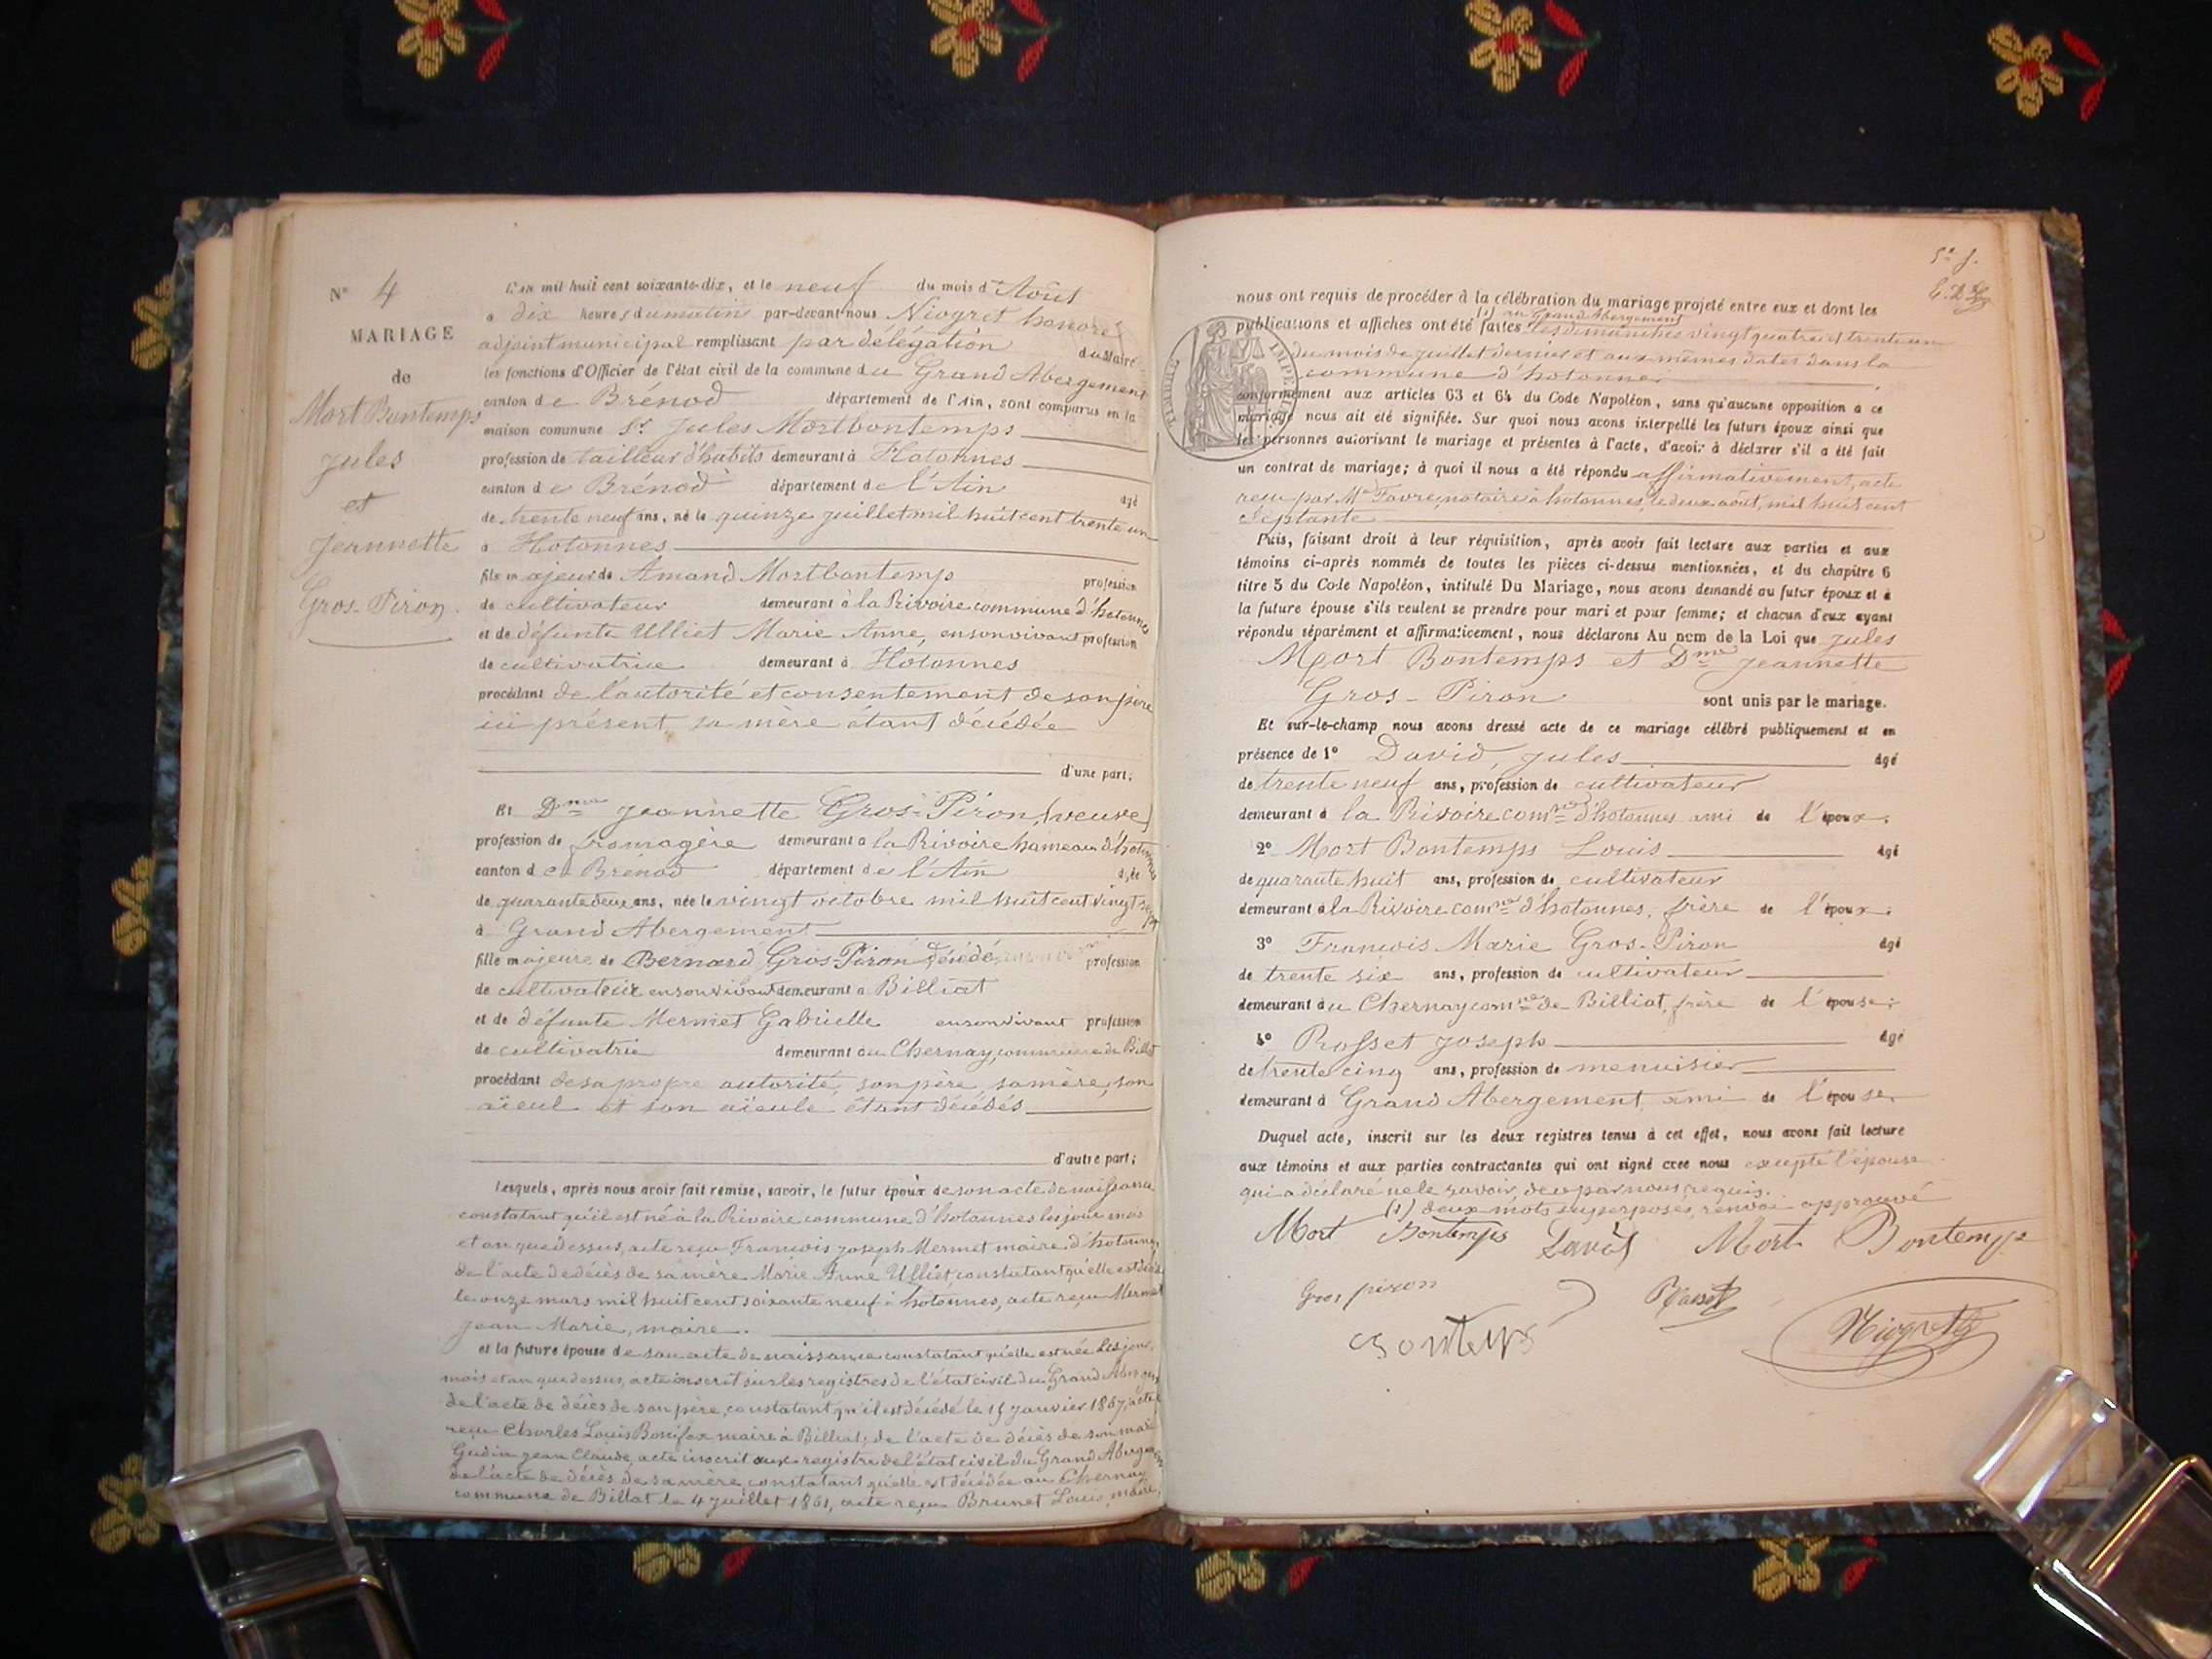 N° 4
MARIAGE
de
Mort Bontemps
Jules
et
Jeannette
Gros-Piron.
L'an mil huit cent soixante-dix, et le neuf du mois d'Août
à dix heures du matin par-devant nous Niogret honoré
adjoint municipal remplissant par délégation du Maire
les fonctions d'Officier de l'état civil de la commune du Grand Abergement
canton de Brénod département de l'Ain, sont comparus en la
maison commune Sr Jules Mortbontemps
profession de tailleur d'habits demeurant à Hotonnes
canton de Brénod département de l'Ain âgé
de trente neuf ans, né le quinze juillet mil huit cent trente un
à Hotonnes
fils majeur de Amand Mortbontemps profession
de cultivateur demeurant à la Rivoire commune d'hotonnes
et de défunte Ulliet Marie Anne, en son vivant profession
de cultivatrice demeurant à Hotonnes
procédant de l'autorité et consentement de son père
ici présent, sa mère étant décédée
d'une part;
Et Dme Jeannette Gros-Piron, (veuve)
profession de fromagère demeurant à la Rivoire hameau d'hotonnes
canton de Brénod département de l'Ain âgée
de quarante deux ans, née le vingt octobre mil huit cent vingt sept
à Grand Abergement
fille majeure de Bernard Gros-Piron décédé profession
de cultivateur en son vivant demeurant à Billiat
et de défunte Mermet Gabrielle en son vivant profession
de cultivatrie demeurant au Chernay, commune de Billiat
procédant de sa propre autorité, son père, sa mère, son
aïeul et son aïeule étant décédés
d'autre part;
Lesquels, après nous avoir fait remise, savoir, le futur époux de son acte de naissance
constatant qu'il est né à la Rivoire commune d'hotonnes les jour mois
et an que dessus, acte reçu François Joseph Mermet maire d'hotonnes,
de l'acte de décès de sa mère Marie Anne Ulliet, constatant qu'elle est décédée
le onze mars mil huit cent soixante neuf à hotonnes, acte reçu Mermet
Jean Marie, maire.
et la future épouse de son acte de naissance constatant qu'elle est née les jour,
mois et an que dessus, acte inscrit sur les registres de l'état civil du Grand Aberg
de l'acte de décès de son père, constatant qu'il est décédé le 15 janvier 1867, acte
reçu Charles Louis Bonifax maire à Billiat; de l'acte de décès de son mari
Gudin Jean Claude, acte inscrit aux registre de l'état civil du Grand Abergem
de l'acte de décès de sa mère, constatant qu'elle est décédée au Chernay
commune de Billat le 4 juillet 1861, acte reçu Brunet Louis, maire.
5e f.
nous ont requis de procéder à la célébration du mariage projeté entre eux et dont les
(1) au Grand Abergement
publications et affiches ont été faites les dimanches vingt quatre et trente un
du mois de juillet dernier et aux mêmes dates dans la
commune d'hotonnes
TIMBRE IMPÉRIAL
conformément aux articles 63 et 64 du Code Napoléon, sans qu'aucune opposition à ce
mariage nous ait été signifiée. Sur quoi nous avons interpellé les futurs époux ainsi que
les personnes autorisant le mariage et présentes à l'acte, d'avoir à déclarer s'il a été fait
un contrat de mariage; à quoi il nous a été répondu affirmativement, acte
reçu par Me Favre, notaire à hotonnes, le deux août, mil huit cent
septante
Puis, faisant droit à leur réquisition, après avoir fait lecture aux parties et aux
témoins ci-après nommés de toutes les pièces ci-dessus mentionnées, et du chapitre 6
titre 5 du Code Napoléon, intitulé Du Mariage, nous avons demandé au futur époux et à
la future épouse s'ils veulent se prendre pour mari et pour femme; et chacun d'eux ayant
répondu séparément et affirmativement, nous déclarons Au nom de la Loi que Jules
Mort Bontemps et Dme Jeannette
Gros-Piron sont unis par le mariage.
Et sur-le-champ nous avons dressé acte de ce mariage célébré publiquement et en
présence de 1° David, Jules âgé
de trente neuf ans, profession de cultivateur
demeurant à la Rivoire comne d'hotonnes ami de l'époux;
2° Mort Bontemps Louis âgé
de quarante huit ans, profession de cultivateur
demeurant à la Rivoire comne d'hotonnes, frère de l'époux;
3° François Marie Gros-Piron âgé
de trente six ans, profession de cultivateur
demeurant au Chernay comne de Billiat, frère de l'épouse;
4° Rosset Joseph âgé
de trente cinq ans, profession de menuisier
demeurant à Grand Abergement ami de l'épouse.
Duquel acte, inscrit sur les deux registres tenus à cet effet, nous avons fait lecture
aux témoins et aux parties contractantes qui ont signé avec nous excepté l'épouse
qui a déclaré ne le savoir, de ce par nous requis.
(1) deux mots superposés, renvoi approuvé
Mort Bontemps David Mort Bontemps
Gros piron Rosset
Bontemps Niogret